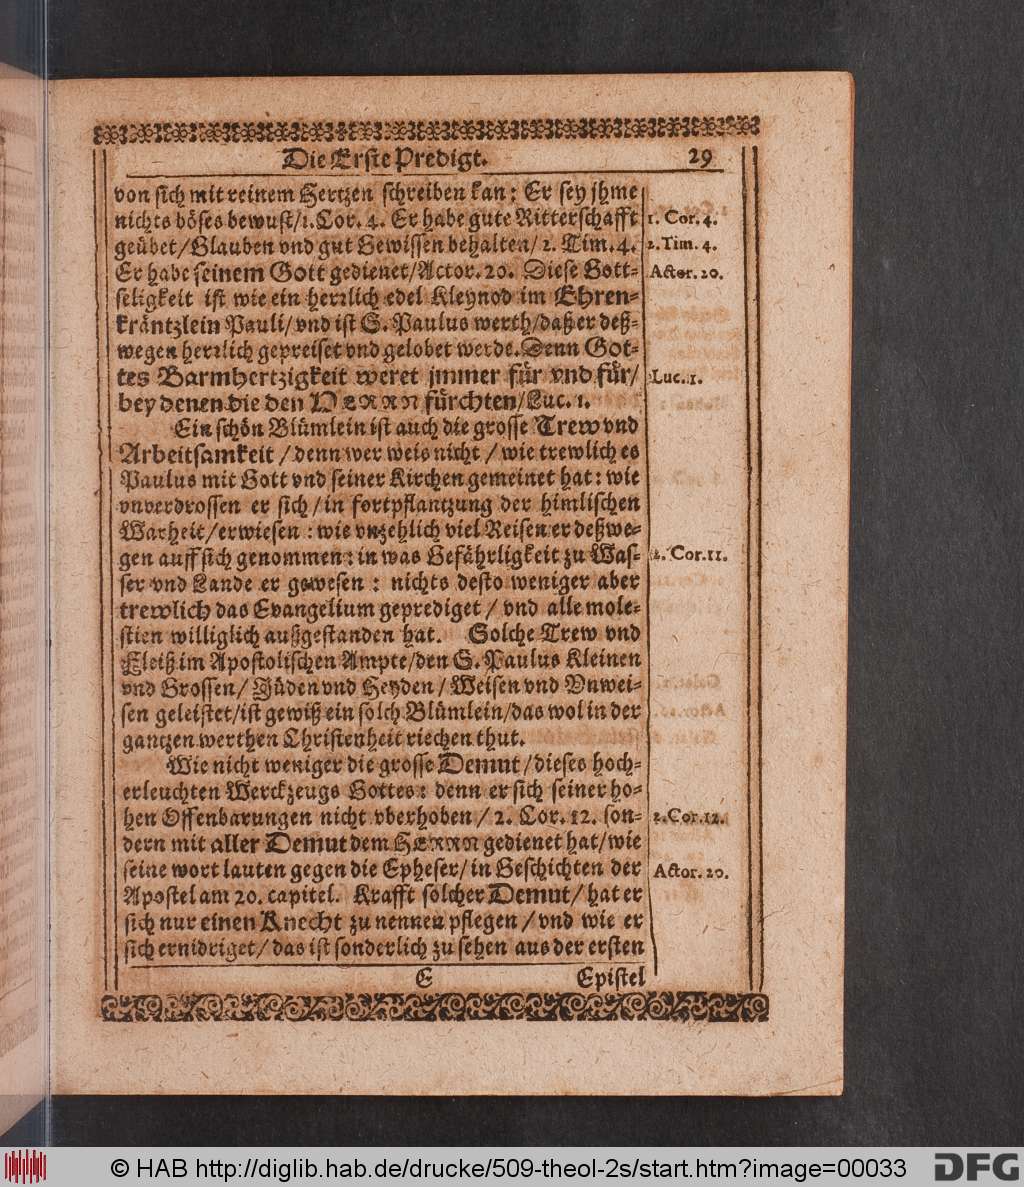 Die Erste Predigt. 29
von sich mit reinem Hertzen schreiben kan: Er sey jhme
nichts böses bewust/1. Cor. 4. Er habe gute Ritterschafft
1. Cor. 4.
geübet/Glauben vnd gut Gewissen behalten/2. Tim. 4.
2. Tim. 4.
Er habe seinem Gott gedienet/Actor. 20. Diese Gott-
Actor. 20.
seligkeit ist wie ein herrlich edel Kleynod im Ehren-
kräntzlein Pauli/vnd ist S. Paulus werth/daß er deß-
wegen herrlich gepreiset vnd gelobet werde. Denn Got-
tes Barmhertzigkeit weret jmmer für vnd für/
Luc. 1.
bey denen die den HERRN fürchten/Luc. 1.
Ein schön Blümlein ist auch die grosse Trew vnd
Arbeitsamkeit/denn wer weis nicht/wie trewlich es
Paulus mit Gott vnd seiner Kirchen gemeinet hat: wie
vnverdrossen er sich/in fortpflantzung der himlischen
Warheit/erwiesen: wie vnzehlich viel Reisen er deßwe-
gen auff sich genommen: in was Gefährligkeit zu Was-
2. Cor. 11.
ser vnd Lande er gewesen: nichts desto weniger aber
trewlich das Evangelium geprediget/vnd alle mole-
stien williglich außgestanden hat. Solche Trew vnd
Fleiß im Apostolischen Ampte/den S. Paulus Kleinen
vnd Grossen/Jüden vnd Heyden/Weisen vnd Vnwei-
sen geleistet/ist gewiß ein solch Blümlein/das wol in der
gantzen werthen Christenheit riechen thut.
Wie nicht weniger die grosse Demut/dieses hoch-
erleuchten Werckzeugs Gottes: denn er sich seiner ho-
hen Offenbarungen nicht vberhoben/2. Cor. 12. son-
2. Cor. 12.
dern mit aller Demut dem HERRN gedienet hat/wie
seine wort lauten gegen die Epheser/in Geschichten der
Actor. 20.
Apostel am 20. capitel. Krafft solcher Demut/hat er
sich nur einen Knecht zu nennen pflegen/vnd wie er
sich ernidriget/das ist sonderlich zu sehen aus der ersten
E Epistel
© HAB http://diglib.hab.de/drucke/509-theol-2s/start.htm?image=00033 DFG